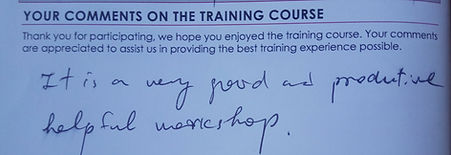 YOUR COMMENTS ON THE TRAINING COURSE
Thank you for participating, we hope you enjoyed the training course. Your comments
are appreciated to assist us in providing the best training experience possible.
It is a very good and produtive
helpful workshop.